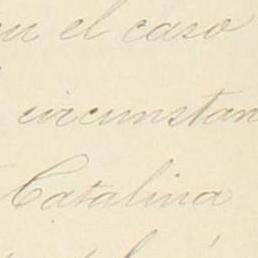 en el caso
circunstan
Catalina